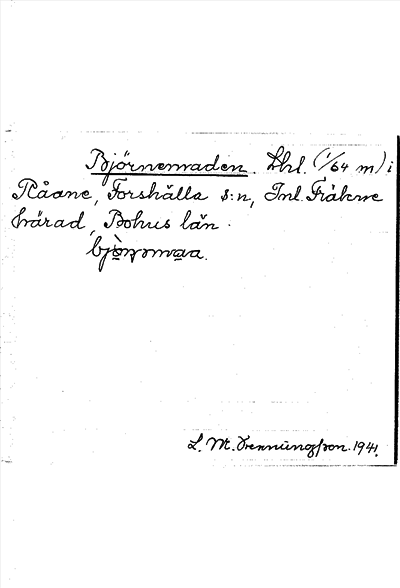 Björnemaden. Lhl. (1/64 m) i
Råane, Forshälla s:n, Inl. Fräkne
härad, Bohus län.
L. M. Svenungsson. 1941.